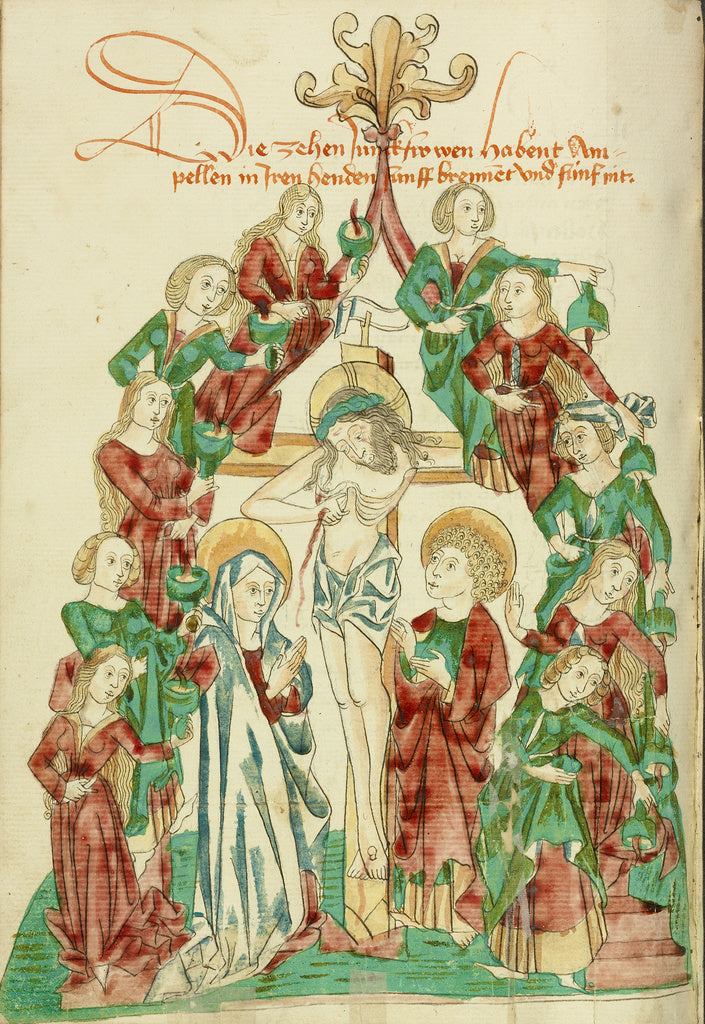 Die zehen Junckfrowen habent Am-
pellen in Jren henden funff brennet vnd fünf nit.